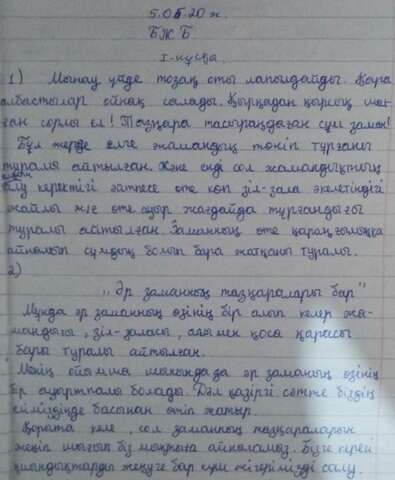 5.05.20 ж.
БЖБ
1-нұсқа.
1) Мынау үйде тозақ оты лапылдайды. Қара
албастылар ойнақ салады. Қырқадан қырсық шал-
ған сорлы ел! Тазқара тасыраңдаған сұм заман!
Бұл жерде елге жамандық төніп тұрғаны
туралы айтылған. Және енді сол жамандықтың
алу керектігі әйтпесе өте көп зіл-зала әкелетіндігі
жайлы және өте ауыр жағдайда тұрғандығы
туралы айтылған. Заманның өте қараңғылыққа
айналып сұмдық болып бара жатқаны туралы.
2)
„Әр заманның тазқаралары бар"
Мұнда әр заманның өзінің бір алып келер жа-
мандығы, зіл-заласы, алымен қоса қарғасы
бары туралы айтылған.
Менің ойымша шынында да әр заманың өзінің
бір ауыртпалы болады. Дәл қазіргі сәтте біздің
еліміздің де басынан өтіп жатыр.
Қорыта келе, сол заманның тазқараларын
жеңіп шығып біз мықтыға айналамыз. Бізге керегі
қиындықтарды жеңуге бар күш жігерімізді салу.